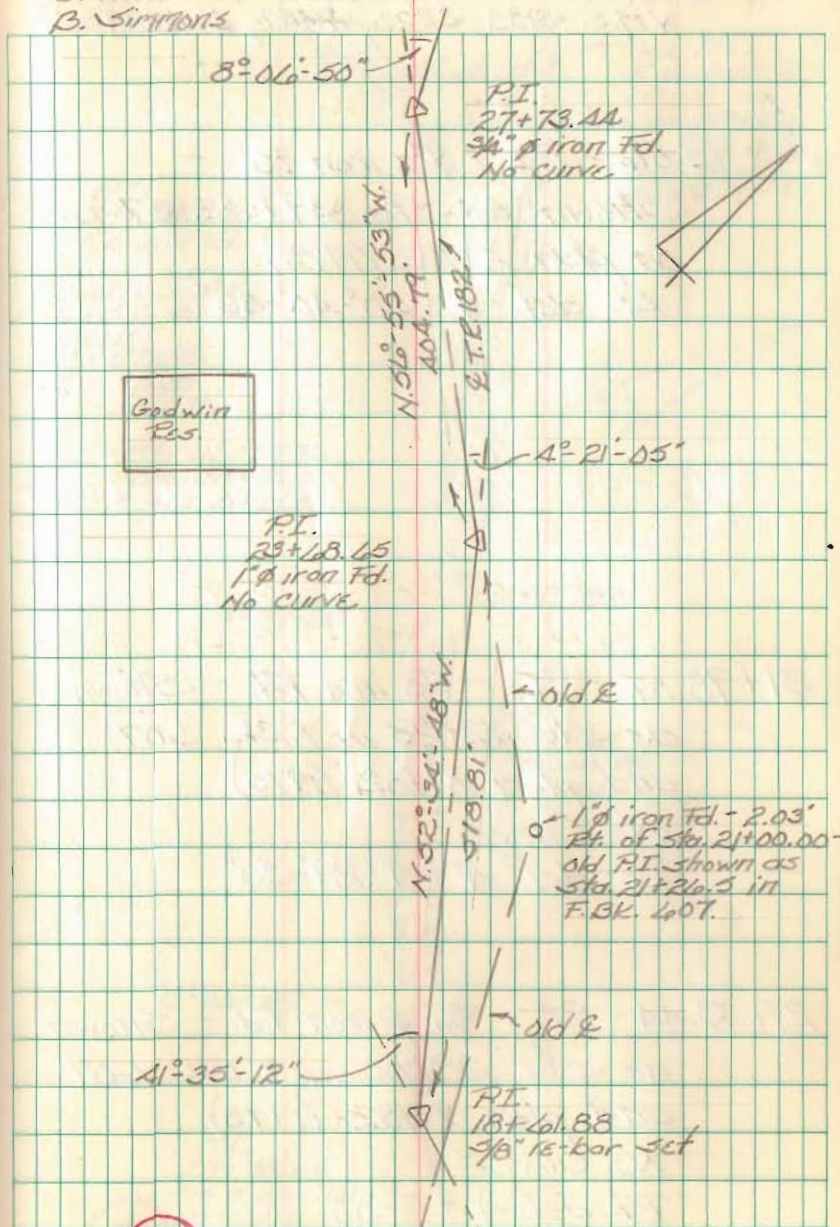 B. Simmons
8°-06'-50"
P.I.
27+73.44
3/4" ø iron Fd.
No curve
N.56°-55'-53"W.
404.79'
℄ T.R. 182
Godwin
Res.
4°-21'-05"
P.I.
23+68.65
1" ø iron Fd.
No curve
old ℄
N.52°-34'-48"W.
518.81'
1" ø iron Fd. - 2.03'
Rt. of Sta. 21+00.00-
old P.I. shown as
Sta. 21+26.5 in
F.BK. 607.
old ℄
41°-35'-12"
P.I.
18+61.88
5/8" re-bar set